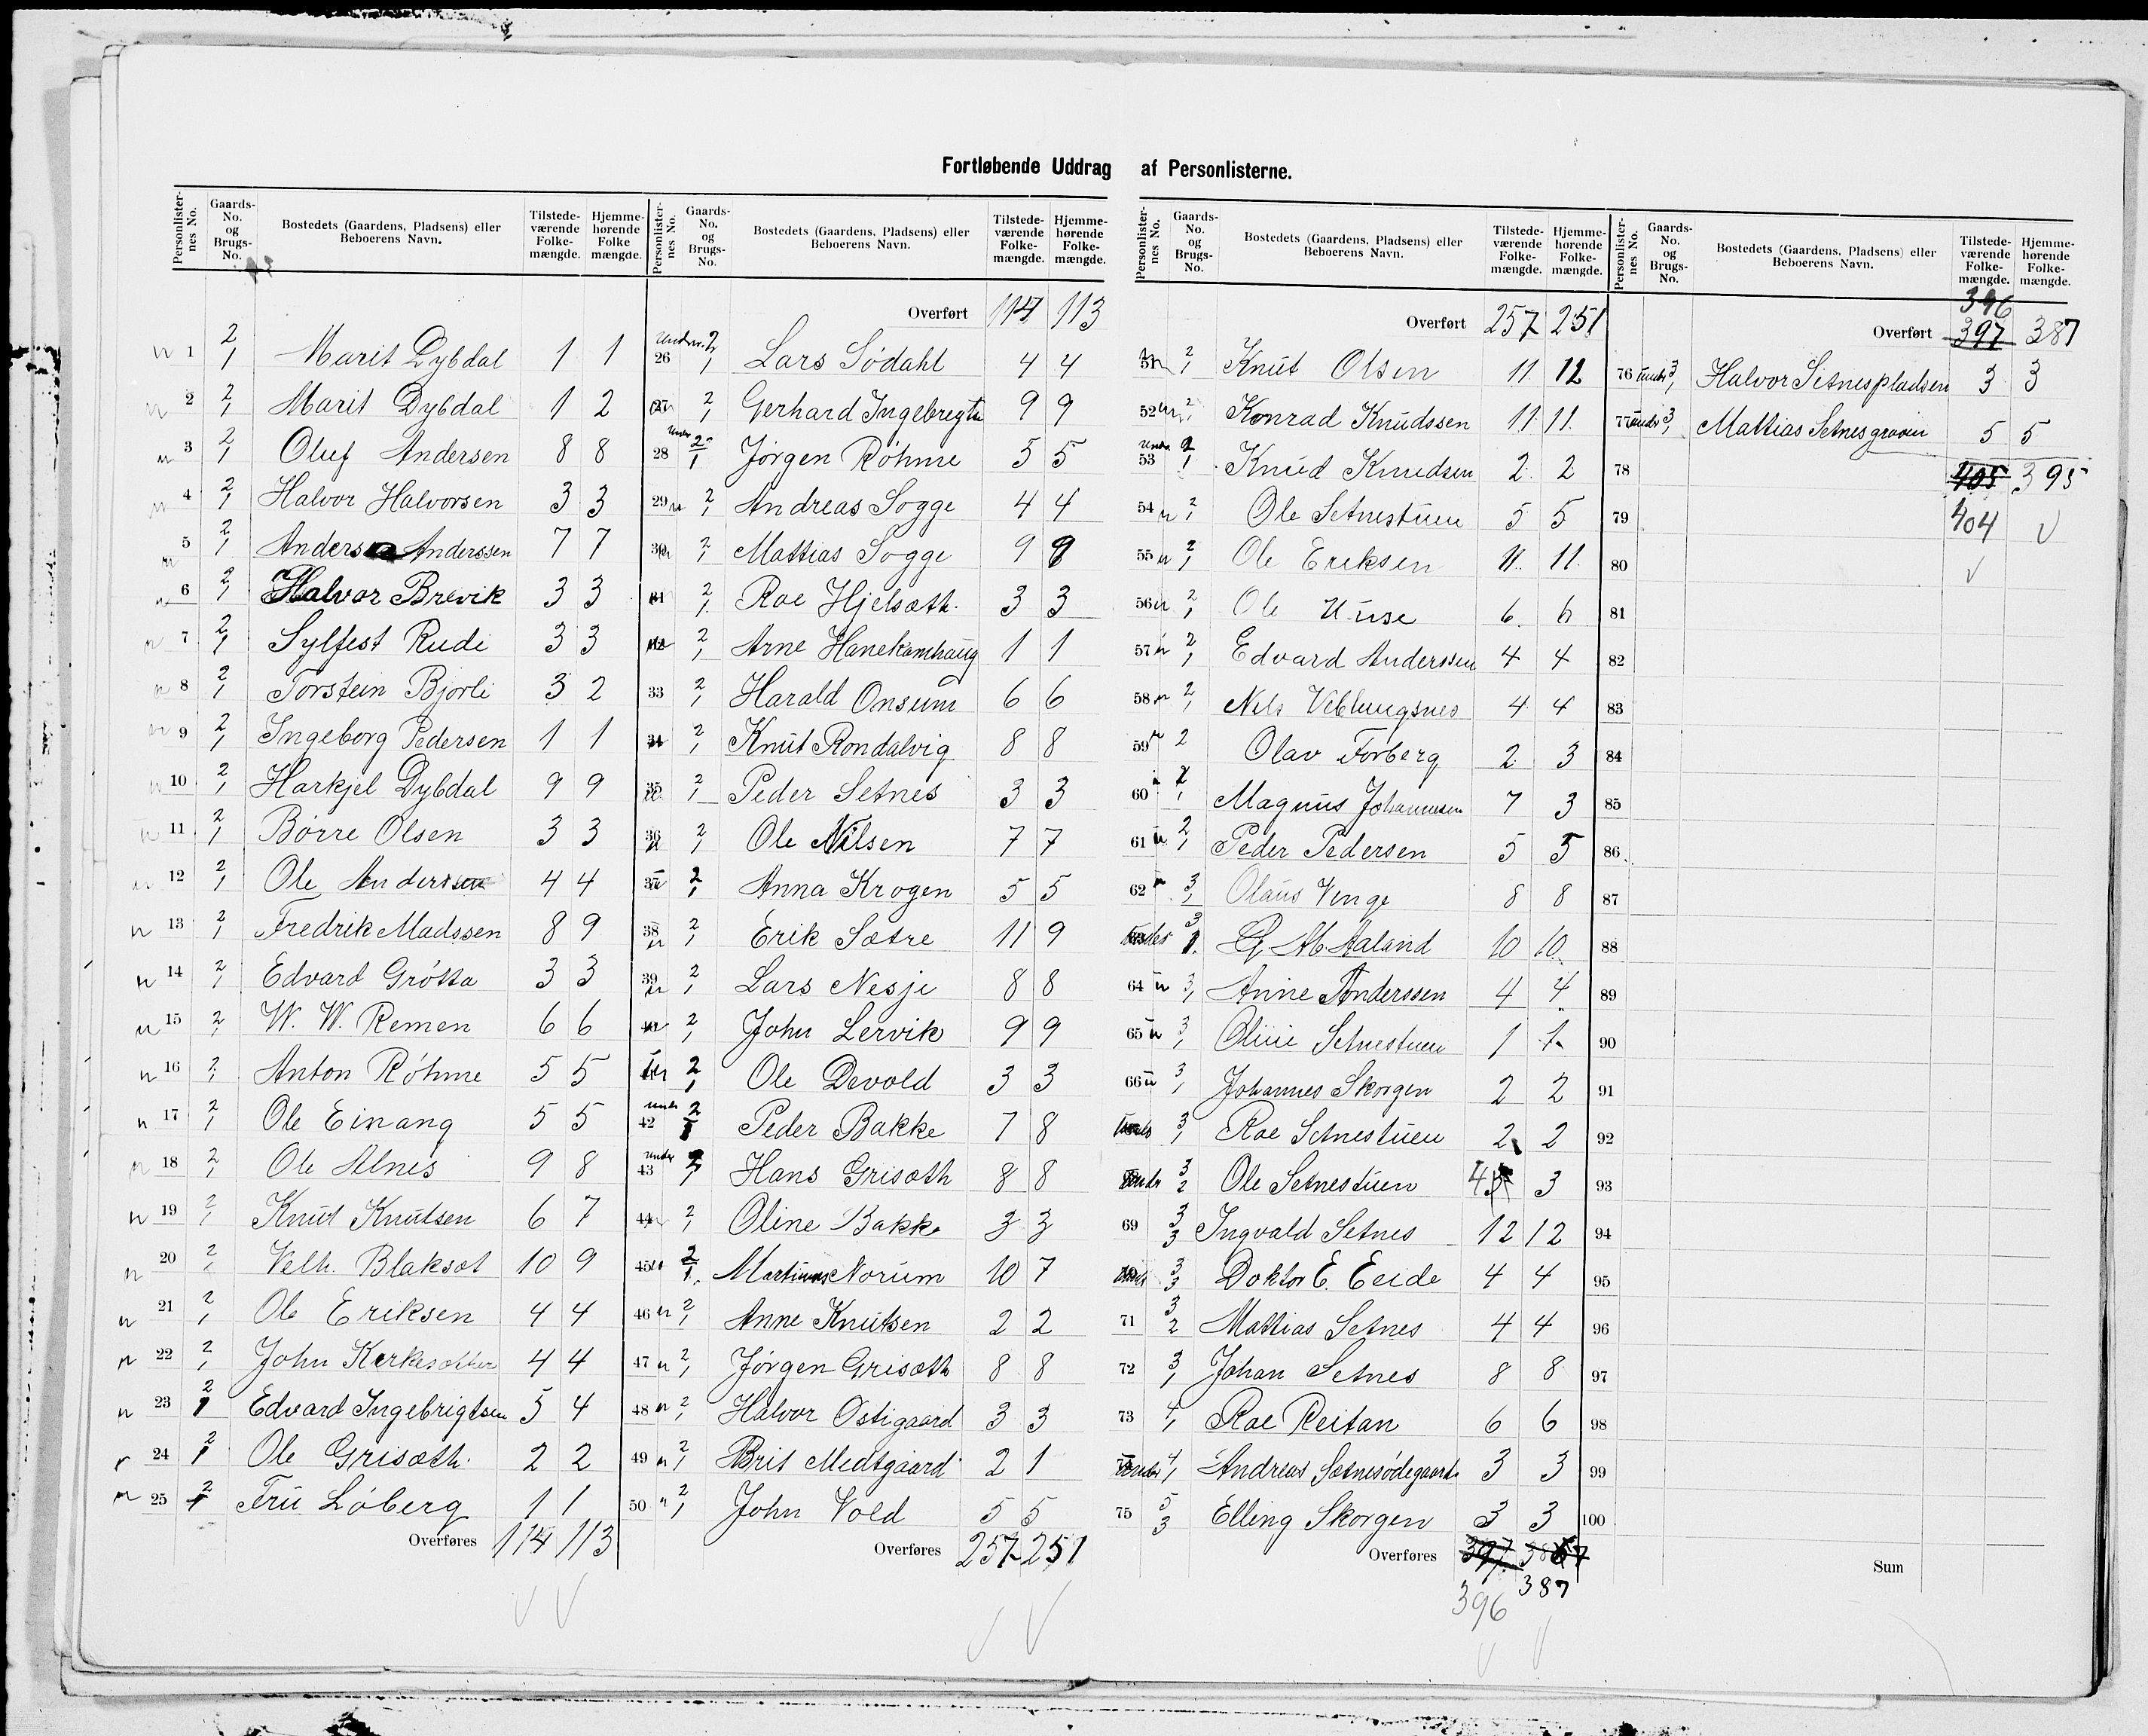 Fortløbende Uddrag af Personlisterne.
Personlister-nes No. Gaards-No. og Brugs-No. Bostedets (Gaardens, Pladsens) eller Beboerens Navn. Tilstede-værende Folke-mængde. Hjemme-hørende Folke mængde.
1 2/1 Marit Dybdal 1 1
2 2/1 Marit Dybdal 1 2
3 2/1 Oluf Andersen 8 8
4 2/1 Halvor Halvorsen 3 3
5 2/1 Anders Anderssen 7 7
6 2/1 Halvor Brevik 3 3
7 2/1 Sylfest Rudi 3 3
8 2/1 Torstein Bjorli 3 2
9 2/1 Ingeborg Pedersen 1 1
10 2/1 Harkjel Dybdal 9 9
11 2/1 Børre Olsen 3 3
12 2/1 Ole Anderssen 4 4
13 2/1 Fredrik Madssen 8 9
14 2/1 Edvard Grøtta 3 3
15 2/1 W. W. Remen 6 6
16 2/1 Anton Røhme 5 5
17 2/1 Ole Einang 5 5
18 2/1 Ole Alnes 9 8
19 2/1 Knut Knutsen 6 7
20 2/1 Velh. Blaksæt 10 9
21 2/1 Ole Eriksen 4 4
22 2/1 John Kirkesætter 4 4
23 2/1 Edvard Ingebrigtsen 5 4
24 2/1 Ole Grisæth 2 2
25 2/1 Fru Løberg 1 1
Overføres 114 113
Personlister-nes No. Gaards-No. og Brugs-No. Bostedets (Gaardens, Pladsens) eller Beboerens Navn. Tilstede-værende Folke-mængde. Hjemme-hørende Folke-mængde.
Overført 114 113
26 2/1 Lars Sødahl 4 4
27 2/1 Gerhard Ingebregts 9 9
28 under 2/1 Jørgen Røhme 5 5
29 2/1 Andreas Sogge 4 4
30 2/1 Mattias Sogge 9 9
31 2/1 Roe Hjelsæth 3 3
32 2/1 Arne Hanekamhaug 1 1
33 2/1 Harald Onsum 6 6
34 2/1 Knut Rondalvig 8 8
35 2/1 Peder Setnes 3 3
36 2/1 Ole Nilsen 7 7
37 2/1 Anna Krogen 5 5
38 2/1 Erik Sætre 11 9
39 2/1 Lars Nesje 8 8
40 2/1 John Lervik 9 9
41 2/1 Ole Devold 3 3
42 under 2/1 Peder Bakke 7 8
43 under 2/1 Hans Grisæth 8 8
44 2/1 Oline Bakke 3 3
45 2/1 Martinus Norum 10 7
46 2/1 Anne Knutsen 2 2
47 2/1 Jørgen Grisæth 8 8
48 2/1 Halvor Ostigaard 3 3
49 2/1 Brit Medtgaard 2 1
50 2/1 John Vold 5 5
Overføres 257 251
Personlister-nes No. Gaards-No. og Brugs-No. Bostedets (Gaardens, Pladsens) eller Beboerens Navn. Tilstede-værende Folke-mængde. Hjemme-hørende Folke-mængde.
Overført 257 251
51 2/1 Knut Olsen 11 12
52 2/1 Konrad Knudssen 11 11
53 under 2/1 Knud Knudsen 2 2
54 2/1 Ole Setnestuen 5 5
55 2/1 Ole Eriksen 11 11
56 2/1 Ole Uuse 6 6
57 2/1 Edvard Anderssen 4 4
58 2/1 Nils Veblungsnes 4 4
59 2 Olav Forberg 2 3
60 2/1 Magnus Johannesen 7 3
61 2/1 Peder Pedersen 5 5
62 3/1 Olaus Venge 8 8
63 3/1 Aaland 10 10
64 3/1 Anne Anderssen 4 4
65 3/1 Oline Setnestuen 1 1
66 3/1 Johannes Skorgen 2 2
3/1 Roe Setnestuen 2 2
3/2 Ole Setnestuen 4 3
69 3/3 Ingvald Setnes 12 12
3/3 Doktor E. Eeide 4 4
71 3/2 Mattias Setnes 4 4
72 3/1 Johan Setnes 8 8
73 4/1 Roe Reitan 6 6
4/1 Andreas Sætnesødegaard 3 3
75 5/3 Elling Skorgen 3 3
Overføres 397 387
396 387
Personlister-nes No. Gaards-No. og Brugs-No. Bostedets (Gaardens, Pladsens) eller Beboerens Navn. Tilstede-værende Folke-mængde. Hjemme-hørende Folke-mængde.
396
Overført 397 387
76 under 3/1 Halvor Setnespladsen 3 3
77 under 3/1 Mattias Setnesgraven 5 5
78 405 395
79 404
80
81
82
83
84
85
86
87
88
89
90
91
92
93
94
95
96
97
98
99
100
Sum